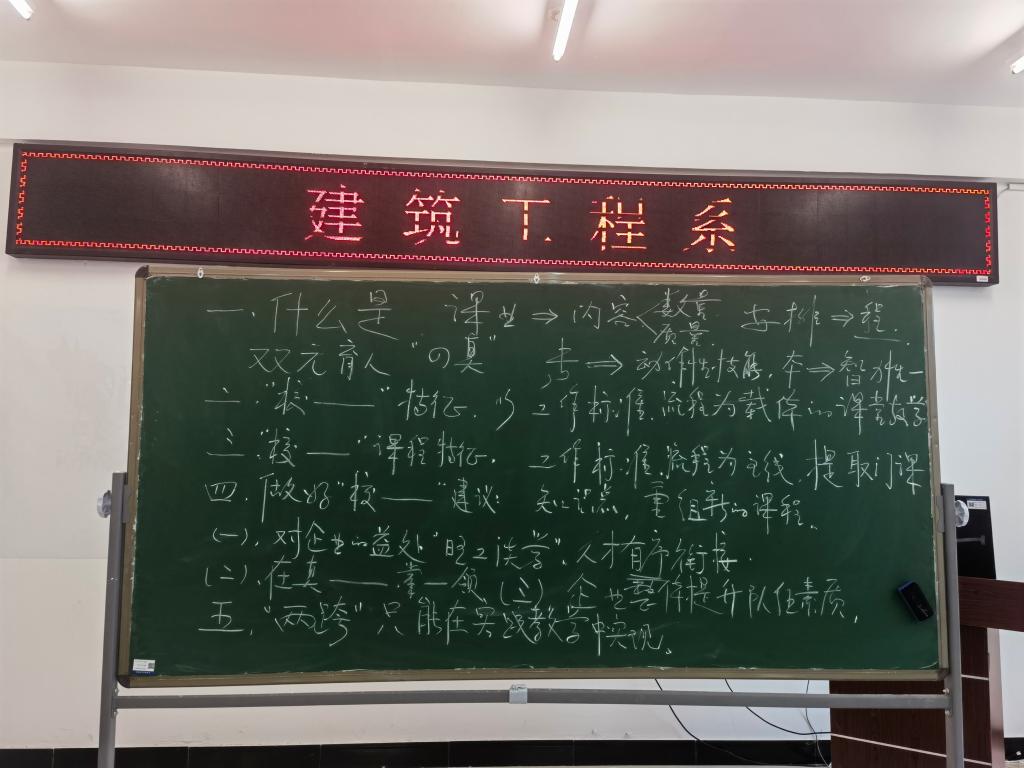 建筑工程系
一、什么是 课业⇒内容<数量 质量 安排⇒程.
双元育人“の真” 专⇒动作性技能,本⇒智力性一
二、“校——”特征. 工作标准、流程为载体的课堂教学
三、“校——”课程特征. 工作标准、流程为主线,提取门课
四、做好“校——”建议: 知识点,重组新的课程。
(一)、对企业的益处“旺工淡学”,人才有序衔接.
(二)、在真——掌一领(三)企业整体提升队伍素质,
五、“两跨”只能在实践教学中实现。